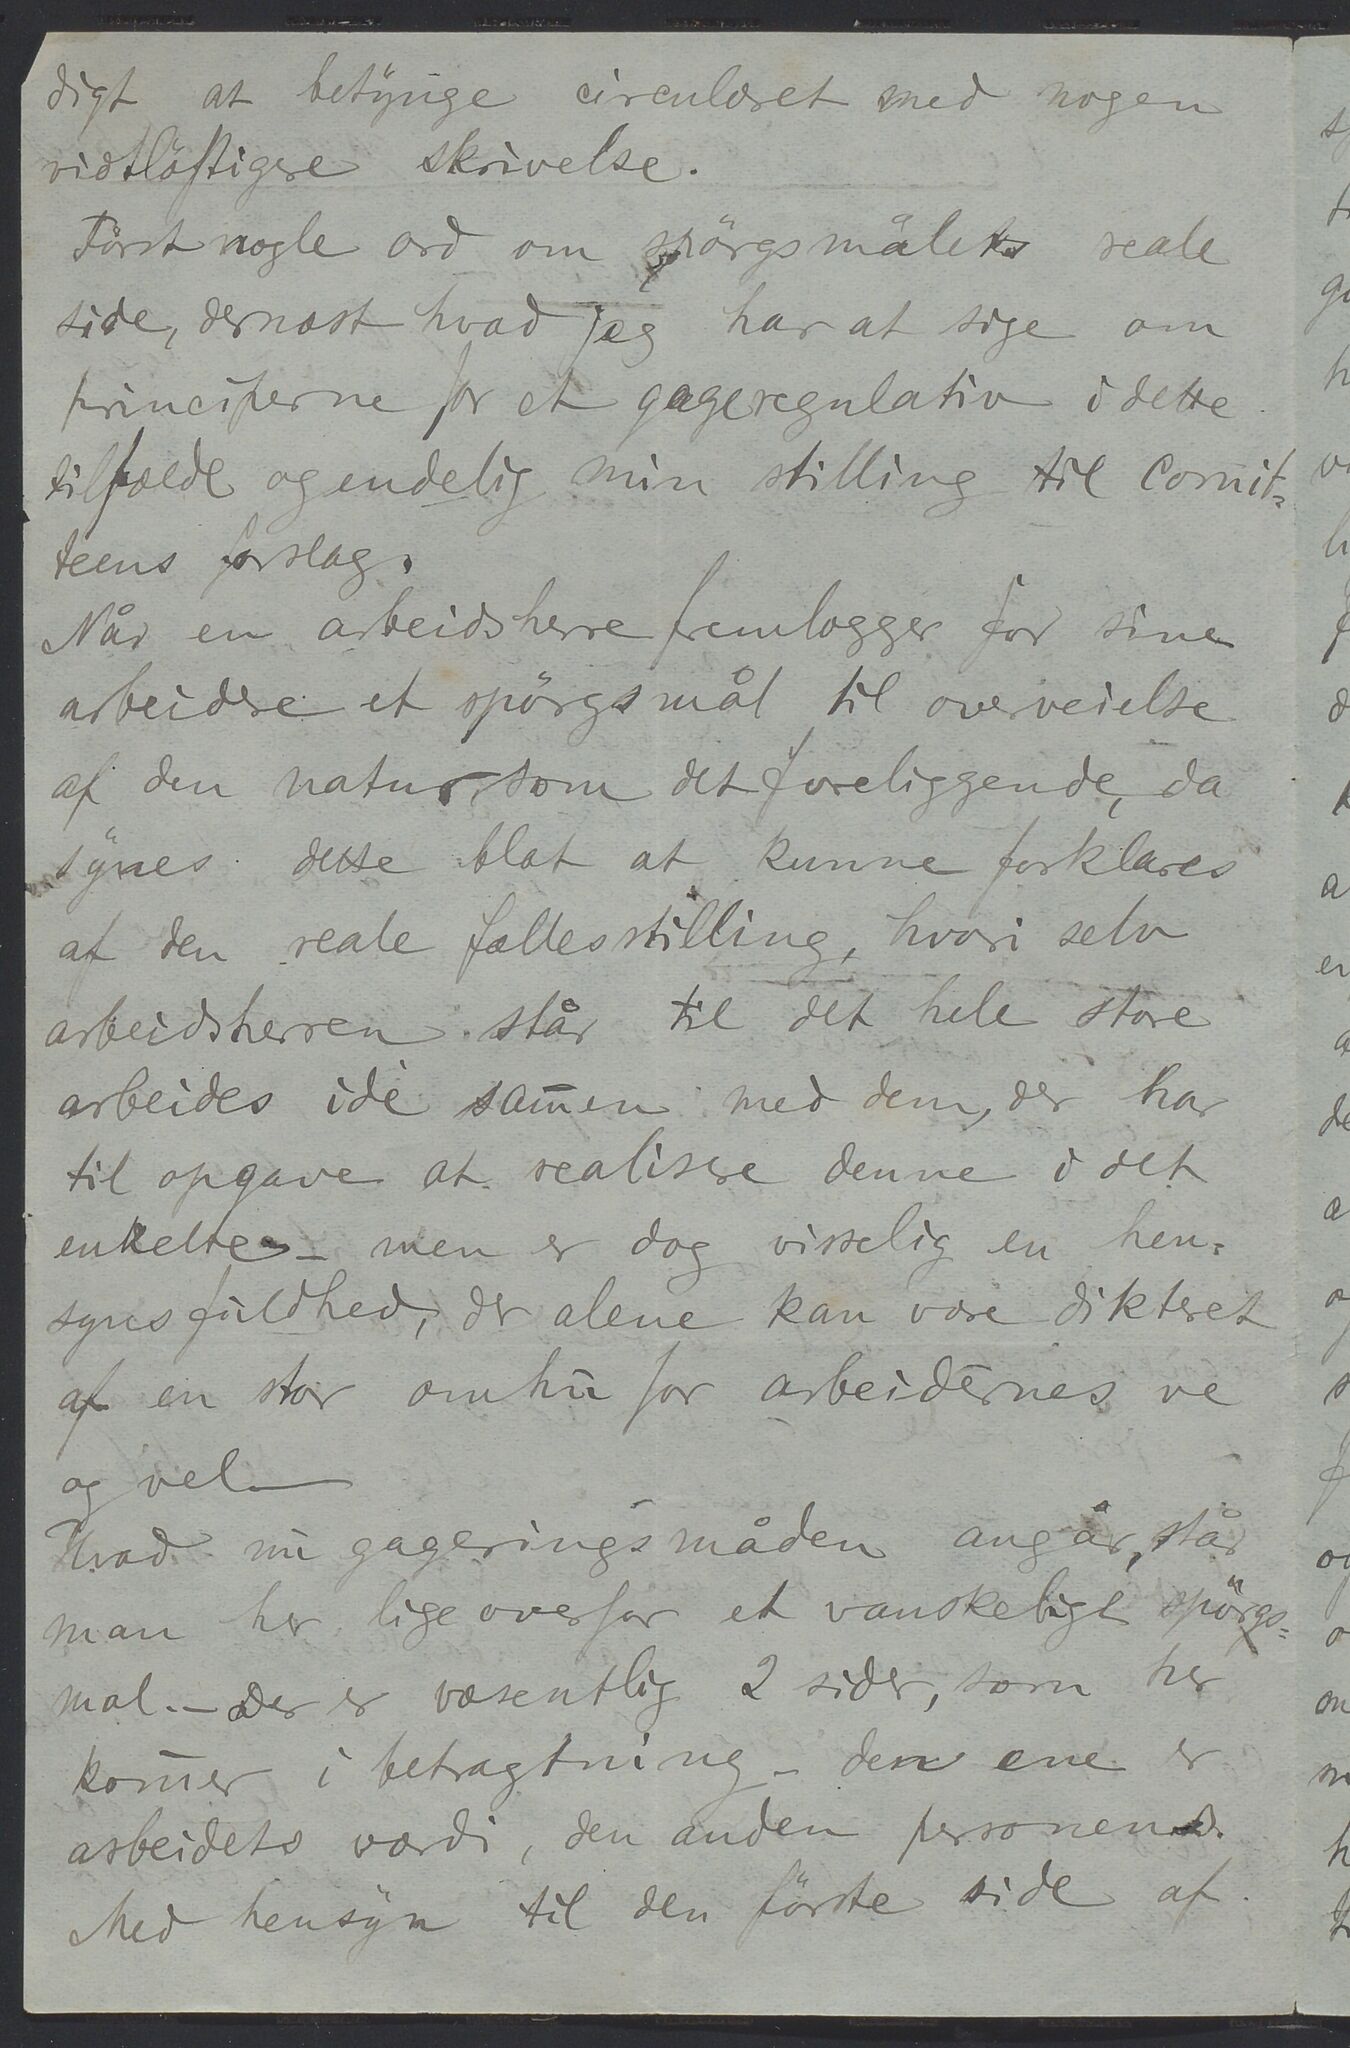 digt at betynge circulæret med nogen
vidtløftigere skrivelse.
Först nogle ord om spörgsmålets reale
side, dernæst hvad jeg har at sige om
principerne for et gageregulativ i dette
tilfælde og endelig min stilling til Comit=
teens forslag.
Når en arbeidsherre fremlægger for sine
arbeidere et spörgsmål til overveielse
af den natur, som det foreliggende, da
synes dette blot at kunne forklares
af den reale fællesstilling, hvori selv
arbeidsherren står til det hele store
arbeides idé sam̅en med dem, der har
til opgave at realisere denne i det
enkelte – men er dog visselig en hen=
synsfuldhed, der alene kan være dikteret
af en stor omhu for arbeidernes ve
og vel. —
Hvad nu gageringsmåden angår, står
man her ligeoverfor et vanskeligt spörgs=
mal. – Der er væsentlig 2 sider, som her
kom̅er i betragtning – den ene er
arbeidets værdi, den anden personens.
Med hensyn til den förste side af